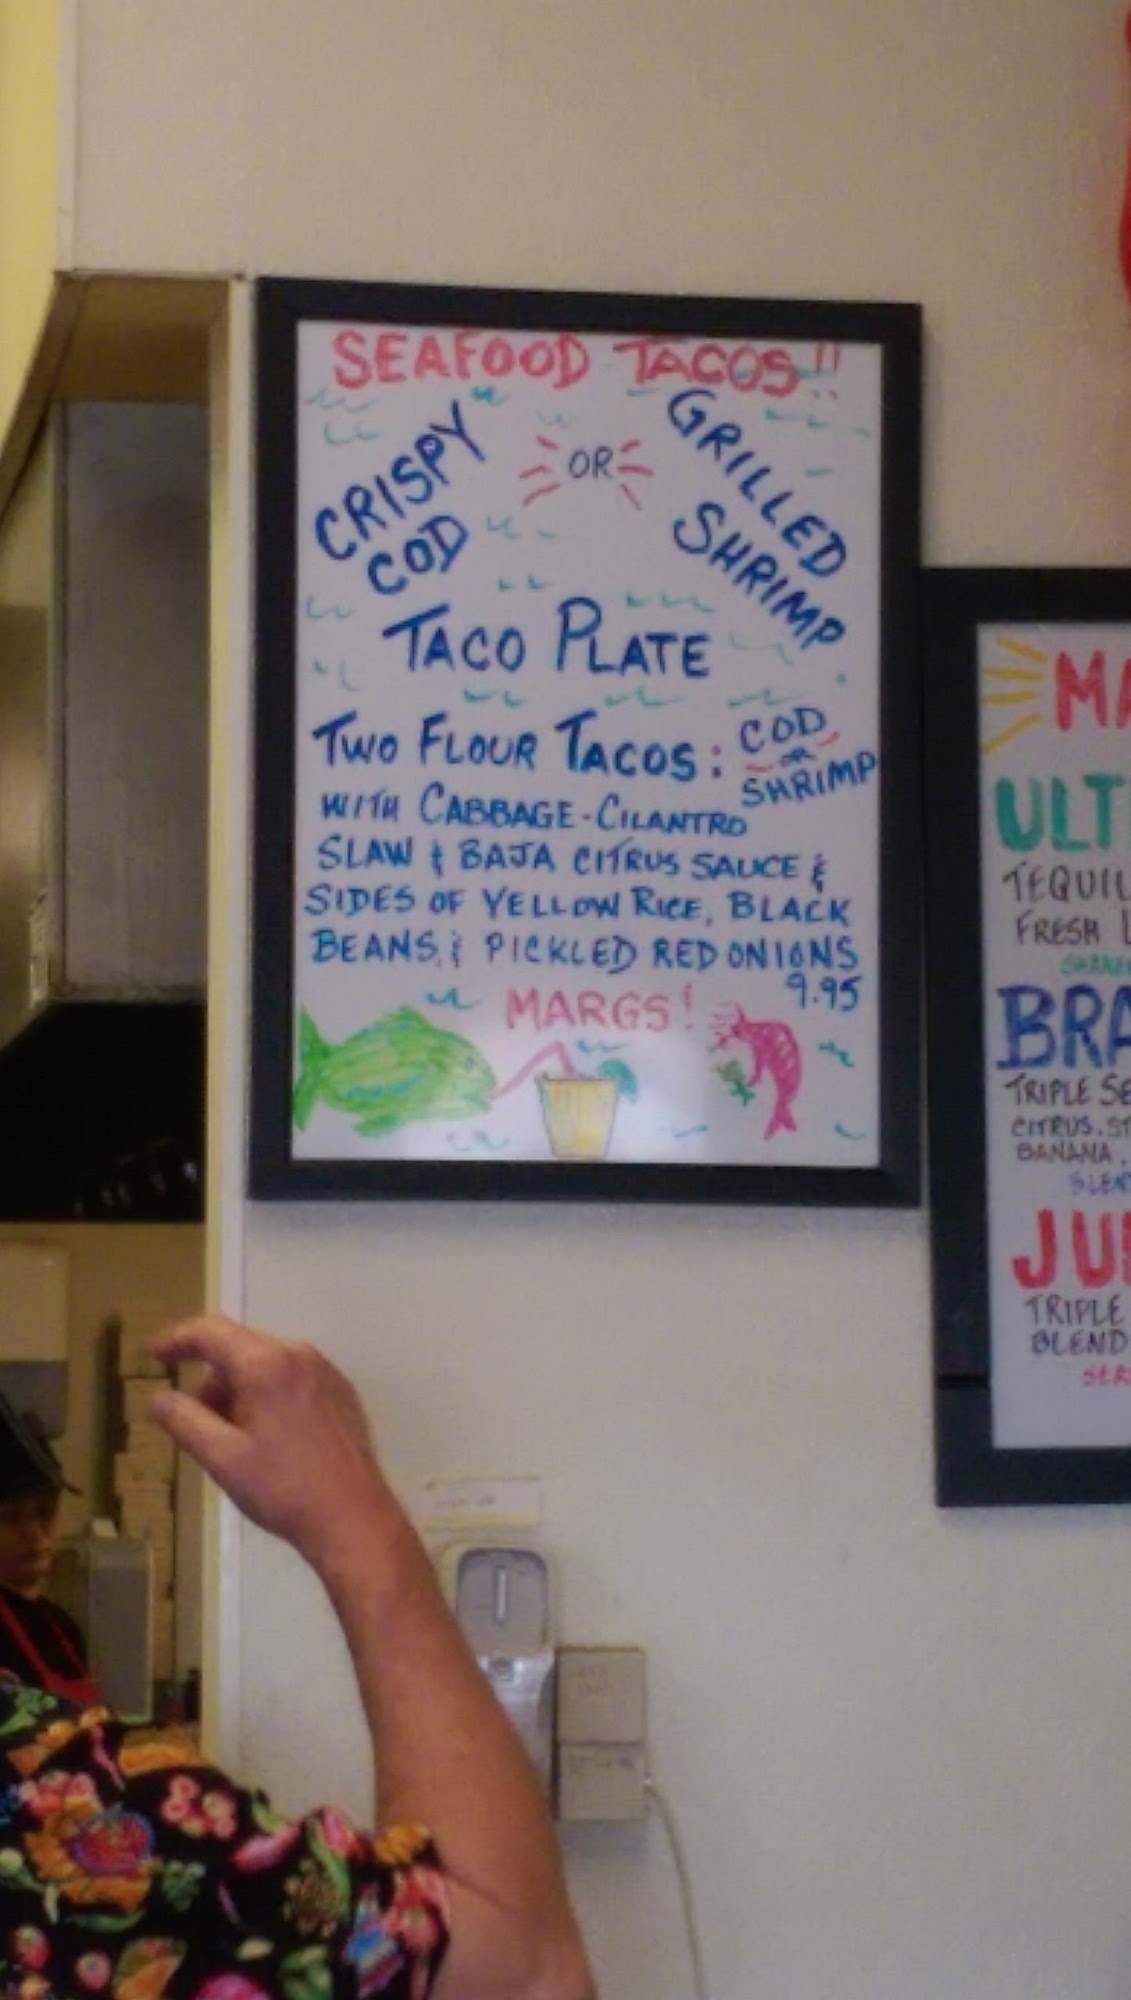 SEAFOOD TACOS!!
CRISPY
COD
OR
GRILLED
SHRIMP
TACO PLATE
TWO FLOUR TACOS: COD,
OR
SHRIMP
WITH CABBAGE-CILANTRO
SLAW & BAJA CITRUS SAUCE &
SIDES OF YELLOW RICE, BLACK
BEANS, & PICKLED RED ONIONS
9.95
MARGS!
MA
ULT
TEQUIL
FRESH L
BRA
TRIPLE SE
CITRUS. ST
BANANA.
BLEN
JU
TRIPLE
BLEND
SER